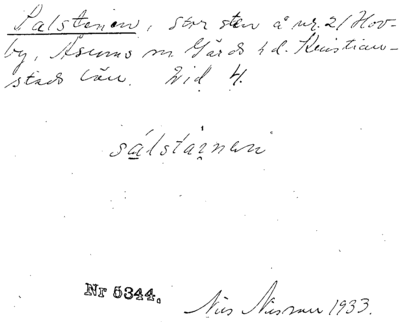 Salstenen, stor sten å nr. 21 Hov-
by, Åsums sn Gärds hd. Kristian-
stads län. Zid 4.
sálstai̯nen
Nr 5344.
Nils Nilsson 1933.